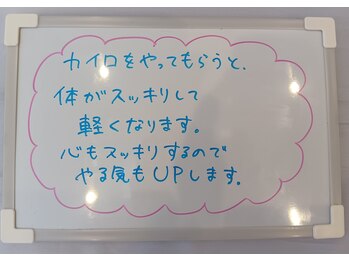 カイロをやってもらうと、
体がスッキリして
軽くなります。
心もスッキリするので
やる気もUPします。